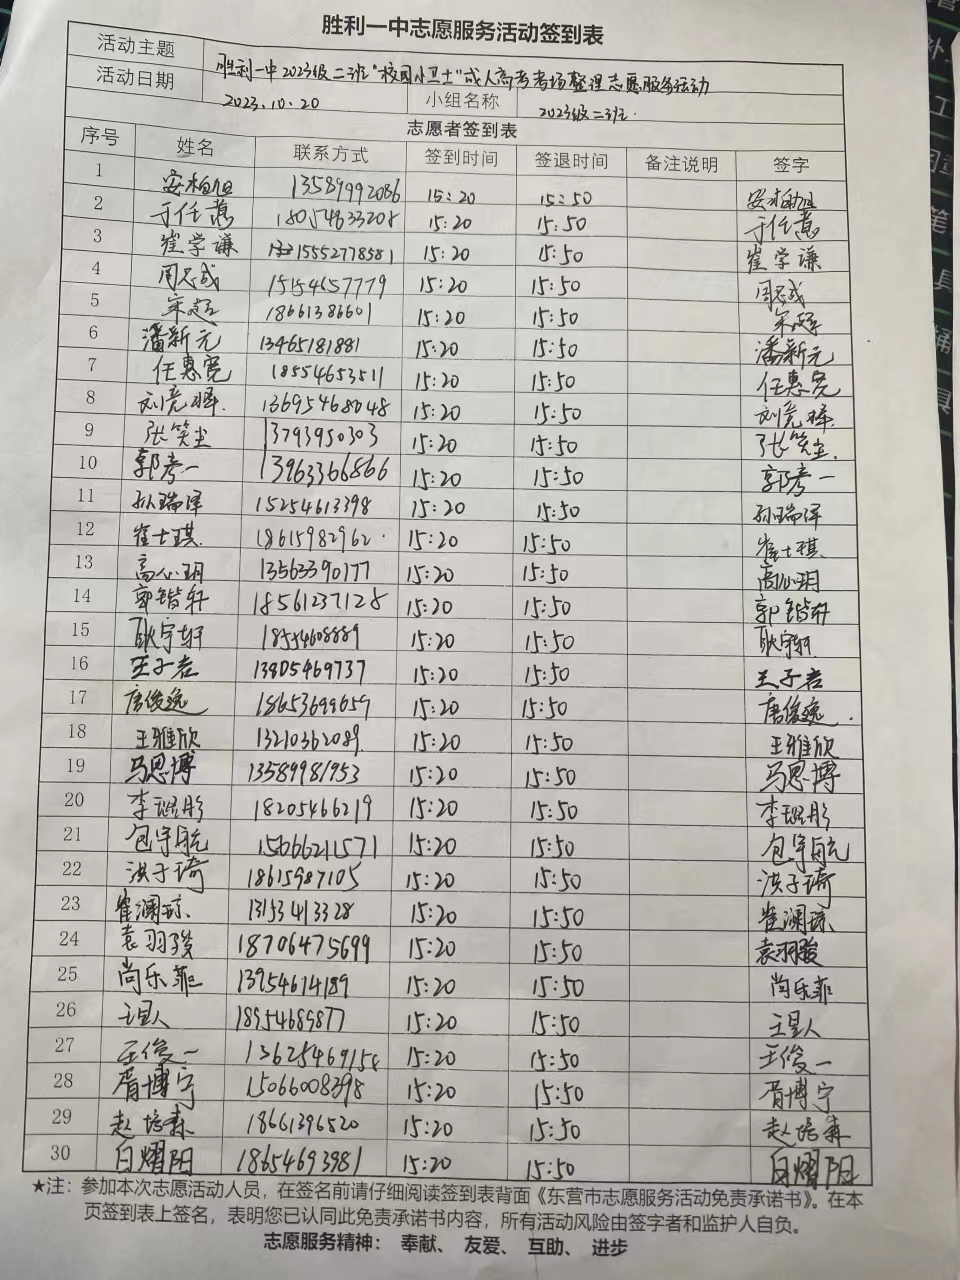 胜利一中志愿服务活动签到表
活动主题 胜利一中2023级二班"校园小卫士"成人高考考场整理志愿服务活动
活动日期 2023.10.20 小组名称 2023级二班.
志愿者签到表
序号 姓名 联系方式 签到时间 签退时间 备注说明 签字
1 安柏旭 13589992086 15:20 15:50 安柏旭
2 于任慧 18054633208 15:20 15:50 于任慧
3 崔学谦 15552778581 15:20 15:50 崔学谦
4 周忠成 15154657779 15:20 15:50 周忠成
5 宋超 18661386601 15:20 15:50 宋超
6 潘新元 13465181881 15:20 15:50 潘新元
7 任惠宽 18554653511 15:20 15:50 任惠宽
8 刘竞择. 13695468048 15:20 15:50 刘竞择.
9 张笑尘 13793950303 15:20 15:50 张笑尘.
10 郭彦一 13963366866 15:20 15:50 郭彦一
11 孙瑞泽 15254613398 15:20 15:50 孙瑞泽
12 崔士琪. 18615982962. 15:20 15:50 崔士琪.
13 高心玥 13563390177 15:20 15:50 高心玥
14 郭锴轩 18561237128 15:20 15:50 郭锴轩
15 耿宇轩 18554608889 15:20 15:50 耿宇轩
16 王子岩 13805469737 15:20 15:50 王子岩
17 唐俊逸 18653699659 15:20 15:50 唐俊逸.
18 王雅欣 13210362089. 15:20 15:50 王雅欣
19 马思博 13589981953 15:20 15:50 马思博
20 李琨彤 18205466219 15:20 15:50 李琨彤
21 包宇航 15666211571 15:20 15:50 包宇航
22 洪子琦 18615987105 15:20 15:50 洪子琦
23 崔澜琼. 13153413328 15:20 15:50 崔澜琼
24 袁羽骏 18706475699 15:20 15:50 袁羽骏
25 尚乐菲 13954614189 15:20 15:50 尚乐菲
26 王昱人 18954689877 15:20 15:50 王昱人
27 王俊一 13625469158 15:20 15:50 王俊一
28 胥博宁 15066008398 15:20 15:50 胥博宁
29 赵培森 18661396520 15:20 15:50 赵培森
30 白熠阳 18654693981 15:20 15:50 白熠阳
★注：参加本次志愿活动人员，在签名前请仔细阅读签到表背面《东营市志愿服务活动免责承诺书》。在本
页签到表上签名，表明您已认同此免责承诺书内容，所有活动风险由签字者和监护人自负。
志愿服务精神： 奉献、 友爱、 互助、 进步